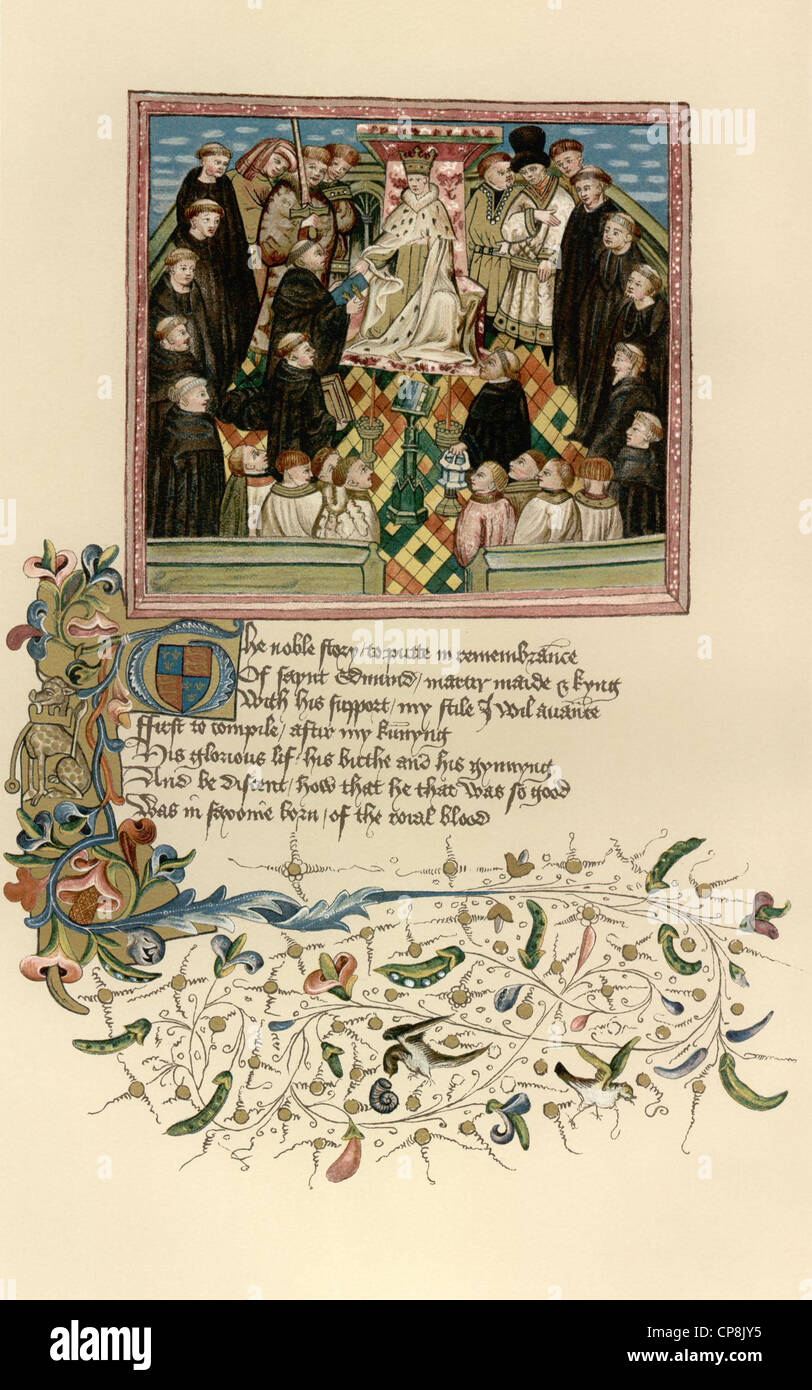 The noble story / to putte in remembrance
Of saynt Edmund / martir maide & kyng
With his support / my stile I wil avance
ffirst to compile / aftir my kunnyng
His glorious lif / his birthe and his gynnyng
And be discent / how that he that was so good
Was in saxonie born / of the roial blood
alamy
Image ID: CP8JY5
www.alamy.com